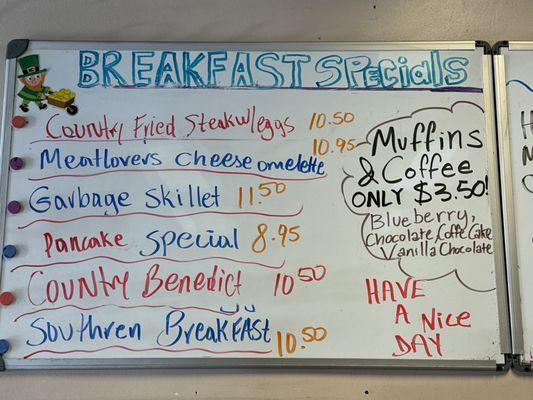 BREAKFAST SPecials
Country Fried Steak w/eggs 10.50
Meatlovers cheese omelette 10.95
Garbage Skillet 11.50
Pancake special 8.95
Country Benedict 10.50
Southren Breakfast 10.50
Muffins
& Coffee
ONLY $3.50!
Blueberry,
Chocolate, Coffe Cake
Vanilla Chocolate
HAVE
A Nice
DAY